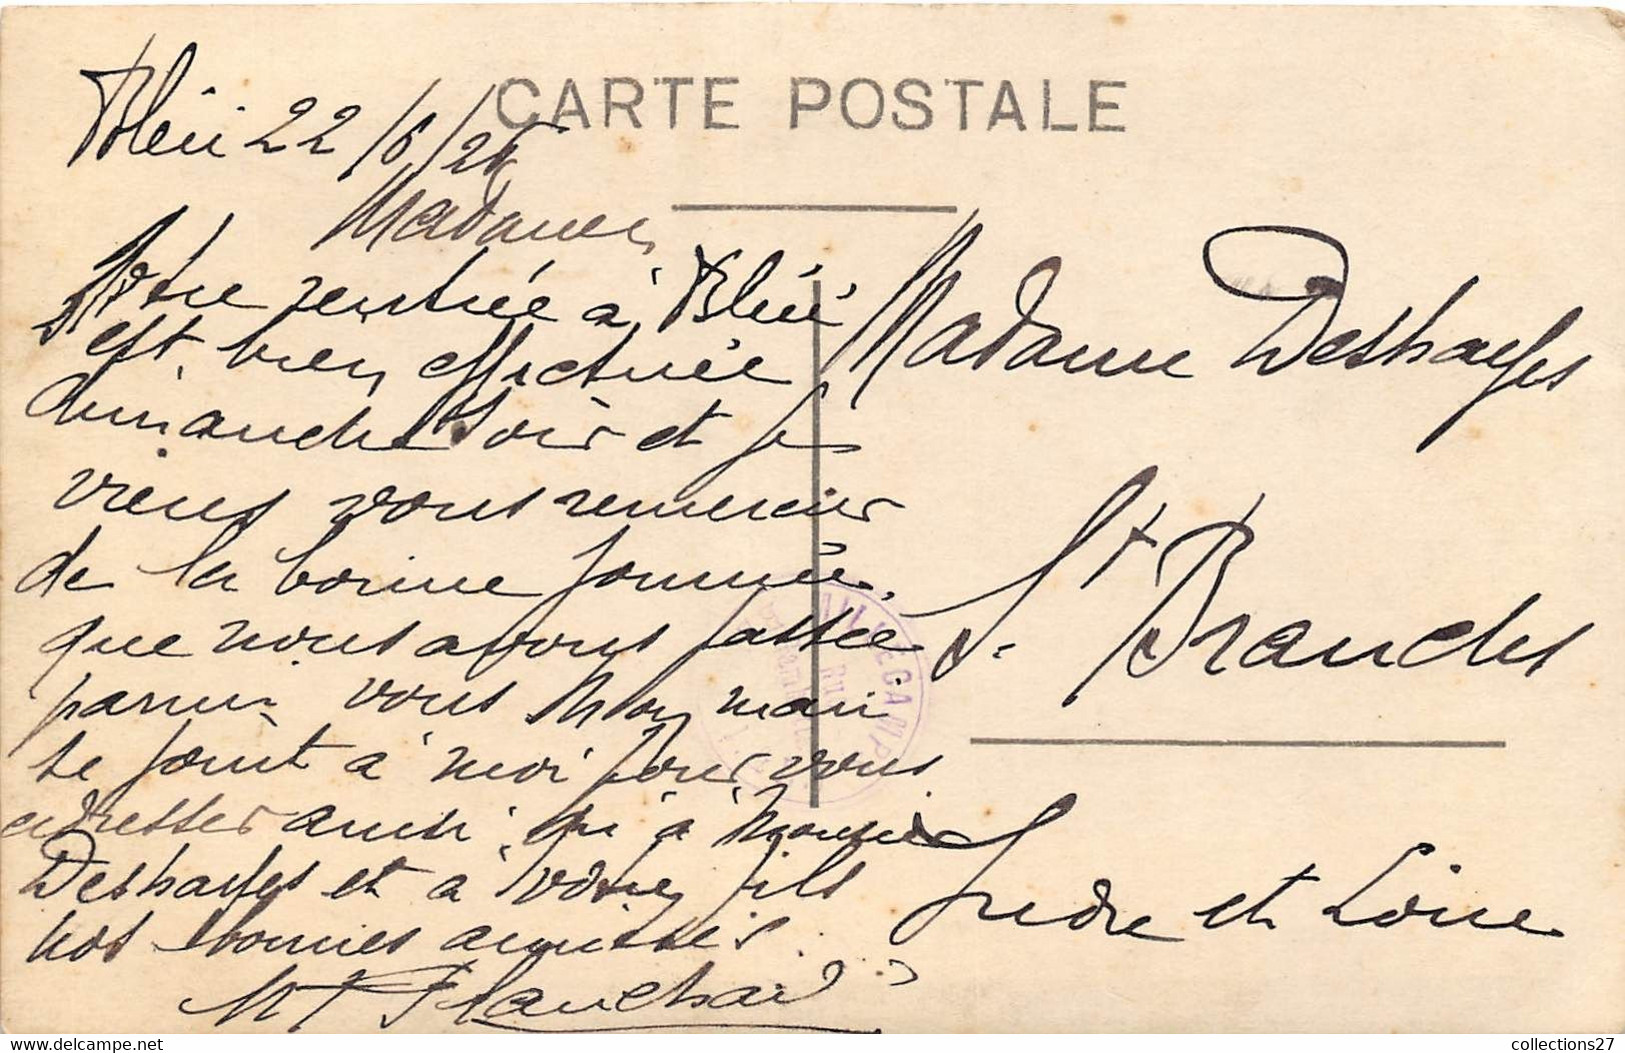 CARTE POSTALE
Bléré 22/6/26
Madame,
Notre rentrée à Bléré
est bien effectuée
dimanche soir et je
viens vous remercier
de la bonne journée
que nous avons passée
parmi vous Mon mari
se joint à moi pour vous
adresser ainsi qu'à Monsieur
Deshayes et à votre fils
nos bonnes amitiés.
Planchard
Madame Deshayes
St. Branchs
Indre et Loire
collections27